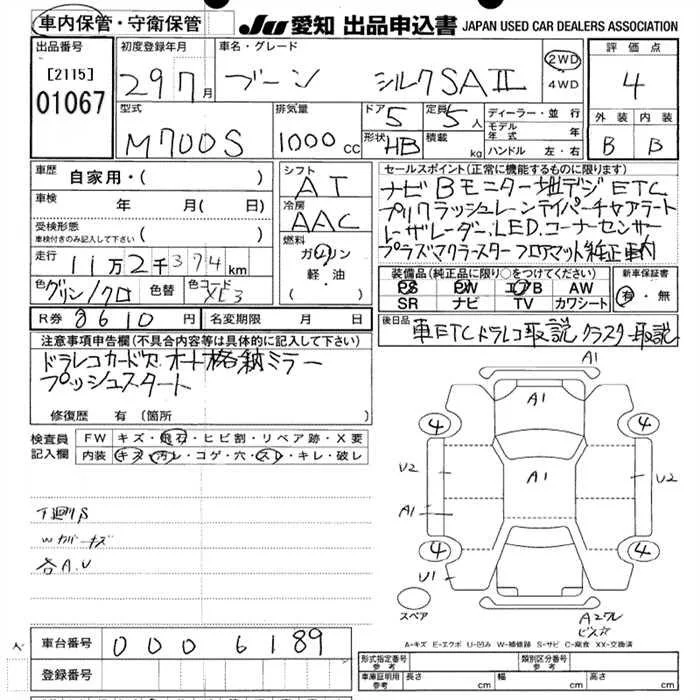 車内保管・守衛保管
JU 愛知 出品申込書 JAPAN USED CAR DEALERS ASSOCIATION
出品番号 初度登録年月 車名・グレード 評価点
[2115] 01067
29 7月 ブーン シルクSAⅡ 2WD 4WD 4
型式 排気量 ドア 定員 ディーラー・並行 外装 内装
M700S 1000cc 5 5人 モデル年式 年 B B
形状 HB 積載 kg ハンドル 左・右
車歴 自家用・( ) シフト AT セールスポイント(正常に機能するものに限ります)
車検 年 月( 日) 冷房 AAC
ナビ Bモニター 地デジ ETC
受検形態 車検付きのみ記入して下さい ( )
プリクラッシュ レーン
レーダー LED コーナーセンサー
フロアマット 純正
走行 11万2千374km 燃料 ガソリン 軽・油
装備品(純正品に限り○をつけてください) 新車保証書
PS PW エアB AW 有・無
SR ナビ TV カワシート
色 グリン/クロ 色替 色コード XE3
R券 8610円 名変期限 月 日
後日品 車 ETC ドラレコ取説 クラスター取説
注意事項申告欄(不具合内容等は具体的に記入して下さい)
ドラレコカード欠 オート格納ミラー
プッシュスタート
修復歴 有(箇所 )
検査員記入欄 FW キズ・飛石・ヒビ割・リペア跡・X要
内装 キズ・汚レ・コゲ・穴・スレ・キレ・破レ
下廻りβ
各A.U
A1
A1
4 4
U2 A1 U2
A1
4 4
U1
スペア
A-キズ E-エクボ U-凹み W-補修跡 S-サビ C-腐食 XX-交換済
車台番号 0006189
登録番号
形式指定番号 参考 類別区分番号 参考
車庫証明用 参考 長さ cm 幅 cm 高さ cm